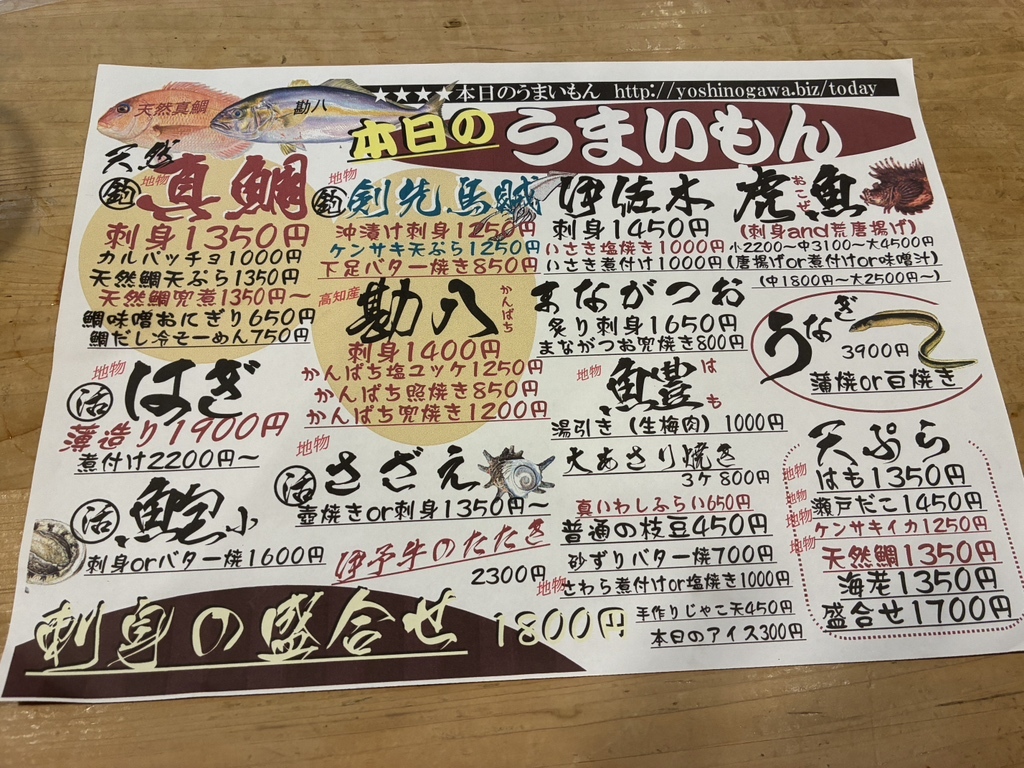 ★★★★本日のうまいもん http://yoshinogawa.biz/today
天然真鯛
勘八
本日の うまいもん
天然
地物
釣 真鯛
刺身1350円
カルパッチョ1000円
天然鯛天ぷら1350円
天然鯛兜煮1350円～
鯛味噌おにぎり650円
鯛だし冷そーめん750円
地物
釣 剣先烏賊
沖漬け刺身1250円
ケンサキ天ぷら1250円
下足バター焼き850円
伊佐木
刺身1450円
いさき塩焼き1000円
いさき煮付け1000円
虎魚 おこぜ
(刺身and荒唐揚げ)
小2200～中3100～大4500円
(唐揚げor煮付けor味噌汁)
(中1800円～大2500円～)
高知産
勘八 かんぱち
刺身1400円
かんぱち塩ユッケ1250円
かんぱち照焼き850円
かんぱち兜焼き1200円
まながつお
炙り刺身1650円
まながつお兜焼き800円
うなぎ
3900円
蒲焼or白焼き
地物
活 はぎ
薄造り1900円
煮付け2200円～
地物
鱧 はも
湯引き(生梅肉)1000円
地物
活 さざえ
壺焼きor刺身1350円～
大あさり焼き
3ケ800円
活 鮑 小
刺身orバター焼1600円
伊予牛のたたき
2300円
真いわしふらい650円
普通の枝豆450円
砂ずりバター焼700円
地物 さわら煮付けor塩焼き1000円
手作りじゃこ天450円
本日のアイス300円
天ぷら
地物 はも1350円
地物 瀬戸だこ1450円
地物 ケンサキイカ1250円
地物 天然鯛1350円
海老1350円
盛合せ1700円
刺身の盛合せ 1800円